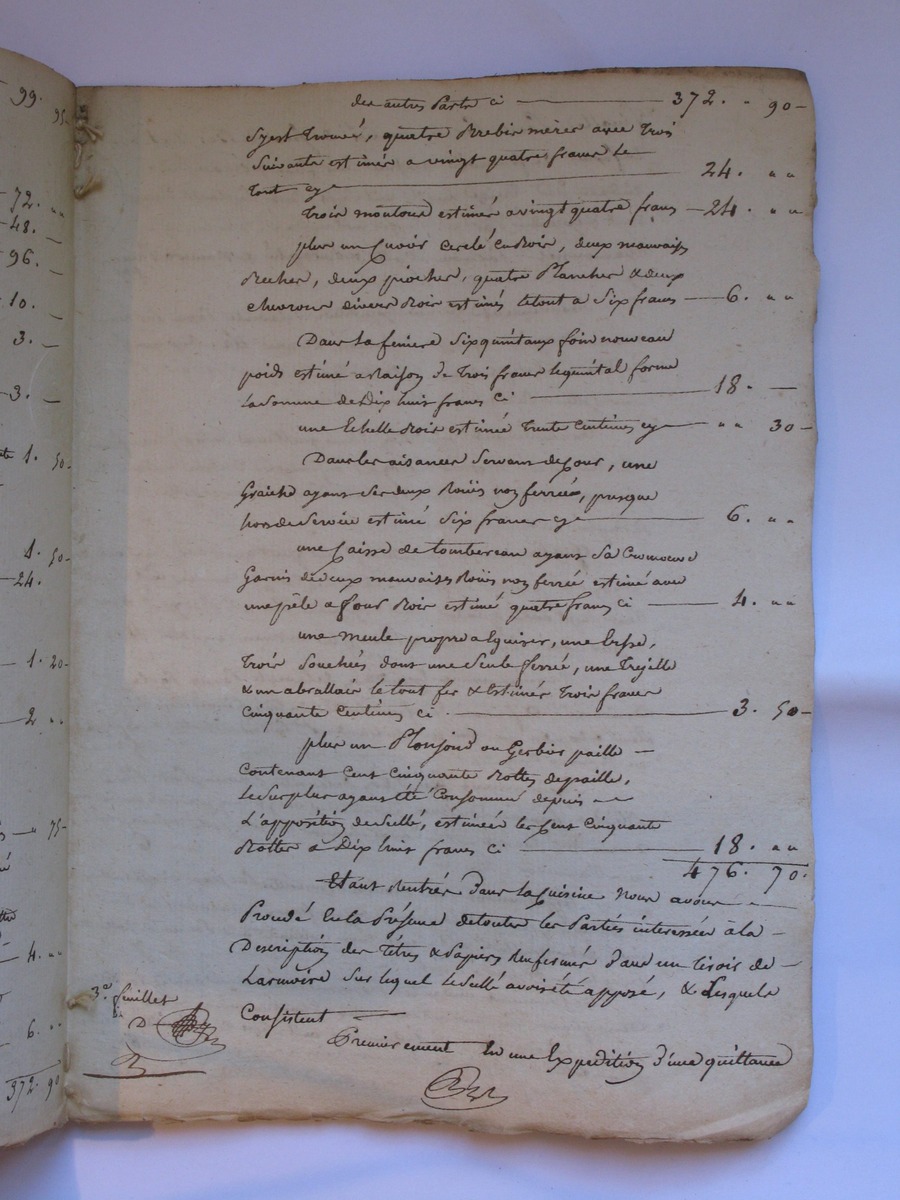 99.
95.
72. „ „
48. –
96. –
10. –
3. –
3. –
1. 50
1. 50
24.
1. 20
2 „ „
75
4. „ „
6. „ „
372. 90
des autres Parts ci 372. „ 90
S'yest trouvé, quatre Brebis mères avec trois
Suivants estimés a vingt quatre francs le
tout cy 24. „ „
Trois moutons estimés a vingt quatre francs 24. „ „
plus un Cuvier cerclé en Bois, deux mauvaises
Beches, deux pioches, quatre Planches & deux
chevrons divers Bois estimés le tout a Six francs 6. „ „
Dans la feniere Six quintaux foin nouveau
poids estimé a Raison de Trois francs le quintal forme
la Somme de Dix huit francs ci 18. –
une Echelle Bois estimée Trente Centimes cy „ „ 30
Dans les aisances Servant de Cour, une
ayant Ses deux Roües non ferrées, presque
hors de Service estimé Six francs cy 6. „ „
une Caisse de tombereau ayant Sa
Garnis de deux mauvaises Roües non ferrée estimé avec
une pêle a four Bois estimé quatre francs ci 4. „ „
une meule propre a Eguiser, une
Trois dont une Seule ferrée, une
& un le tout fer & Estimés Trois francs
Cinquante Centimes ci 3. 50
plus un Plonjond ou Gerbier paille
Contenant Cent Cinquante Bottes de paille,
le Surplus ayant été Consommé depuis
L'apposition du Scellé, estimées les Cent Cinquante
Bottes a Dix huit francs ci 18. „ „
476. 70.
Etant Rentrés Dans la Cuisine Nous avons
Procédé En la Présence de toutes les Parties interessées à la
Description des Titres & Papiers Renfermés Dans un tiroir de
Larmoire Sur lequel le Scellé avoit été apposé, & Lesquels
Consistent
3e. feuillet
Premierement En une Expedition d'une quittance